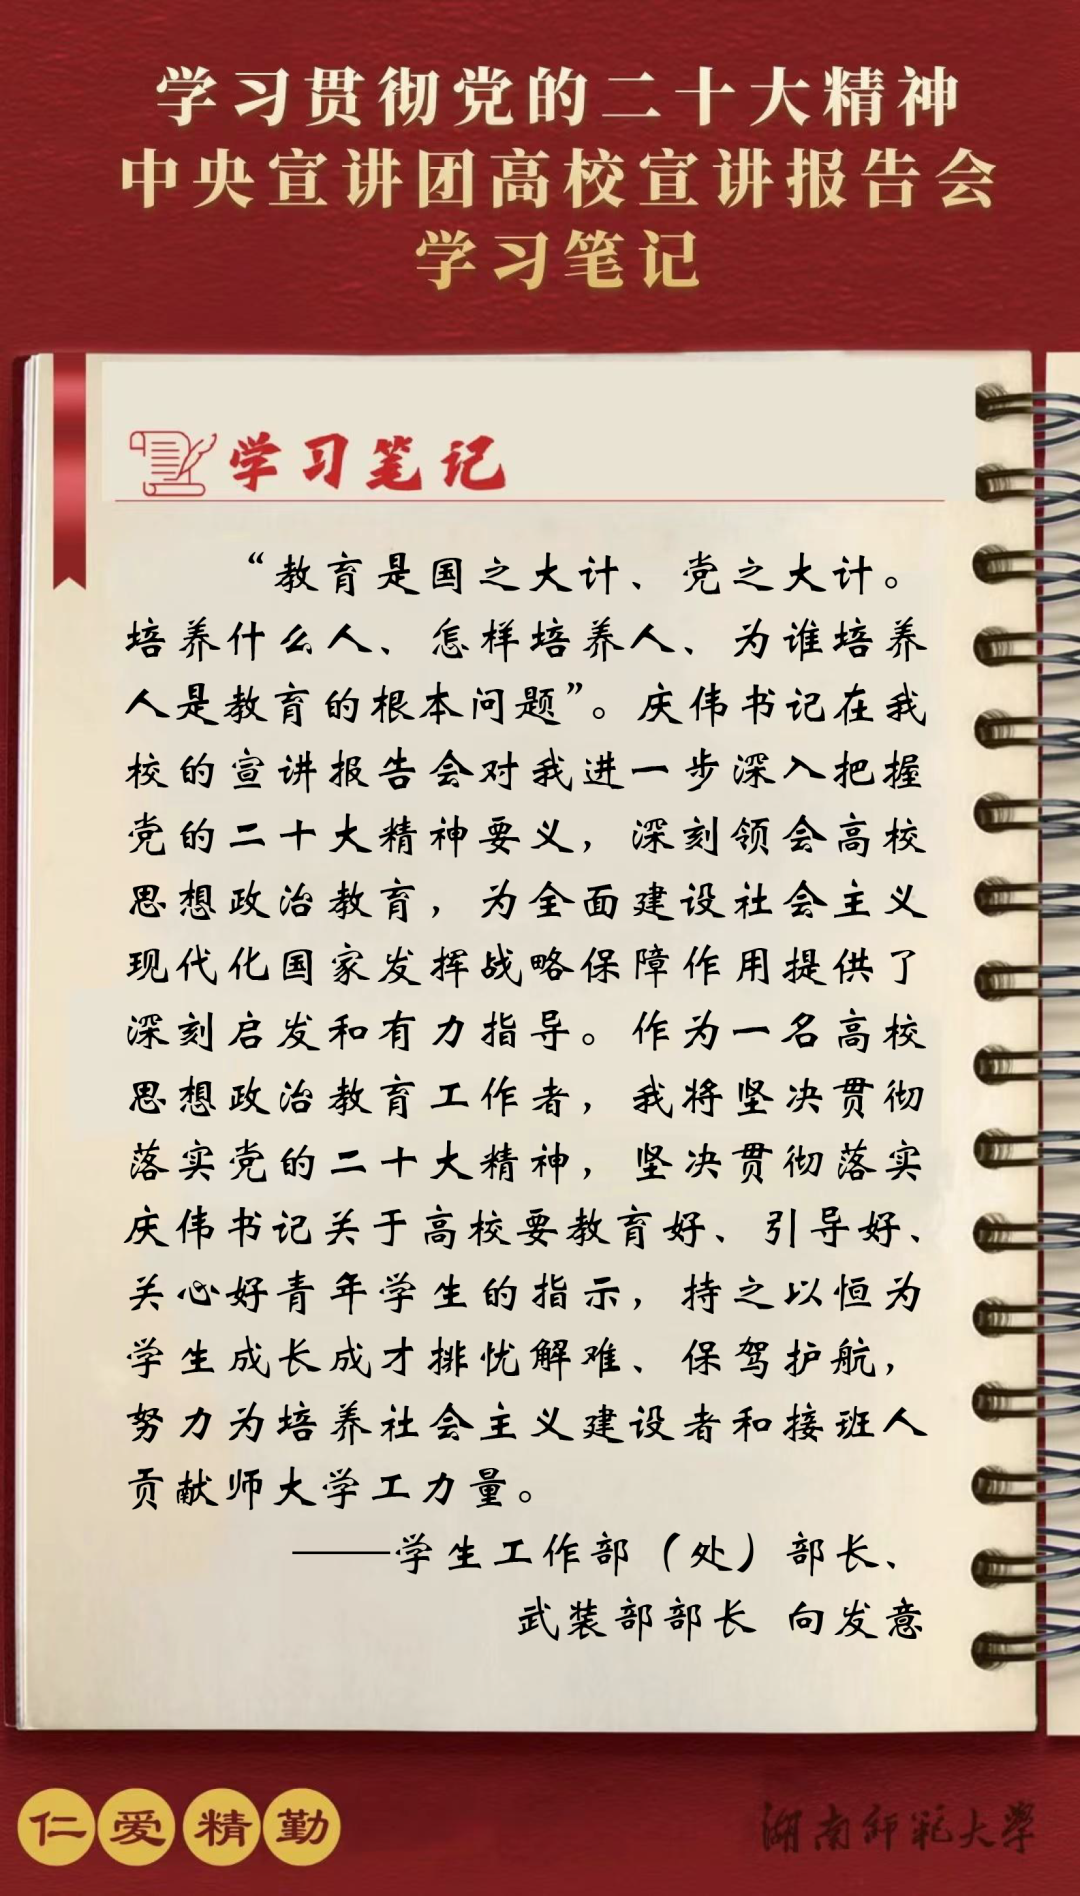 学习贯彻党的二十大精神
中央宣讲团高校宣讲报告会
学习笔记
学习笔记
“教育是国之大计、党之大计。
培养什么人、怎样培养人、为谁培养
人是教育的根本问题”。庆伟书记在我
校的宣讲报告会对我进一步深入把握
党的二十大精神要义，深刻领会高校
思想政治教育，为全面建设社会主义
现代化国家发挥战略保障作用提供了
深刻启发和有力指导。作为一名高校
思想政治教育工作者，我将坚决贯彻
落实党的二十大精神，坚决贯彻落实
庆伟书记关于高校要教育好、引导好、
关心好青年学生的指示，持之以恒为
学生成长成才排忧解难、保驾护航，
努力为培养社会主义建设者和接班人
贡献师大学工力量。
——学生工作部（处）部长、
武装部部长 向发意
仁爱精勤
湖南师范大学